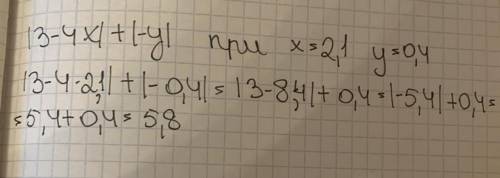 |3-4x|+|-y| при x=2,1 y=0,4
|3-4·2,1|+|-0,4|=|3-8,4|+0,4=|-5,4|+0,4=
=5,4+0,4=5,8